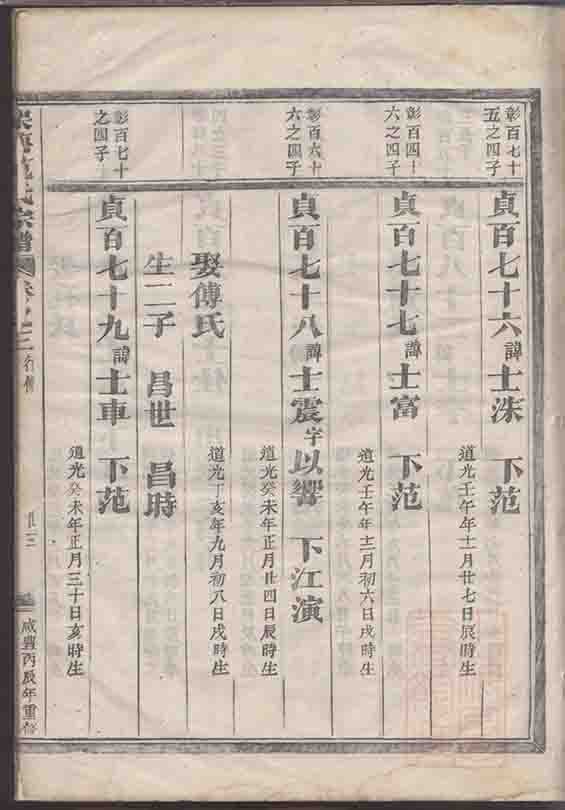 彰百七十
五之四子
貞百七十六諱士洙 下范
道光壬午年十一月廿七日辰時生
彰百四十
六之四子
貞百七十七諱士富 下范
道光壬午年十二月初六日戌時生
彰百六十
六之四子
貞百七十八諱士震字以響 下江演
道光癸未年正月廿四日辰時生
娶傅氏
道光丁亥年九月初八日戌時生
生二子 昌世 昌時
彰百七十
之四子
貞百七十九諱士車 下范
道光癸未年正月三十日亥時生
氏宗譜 行傳
咸豐丙辰年重修